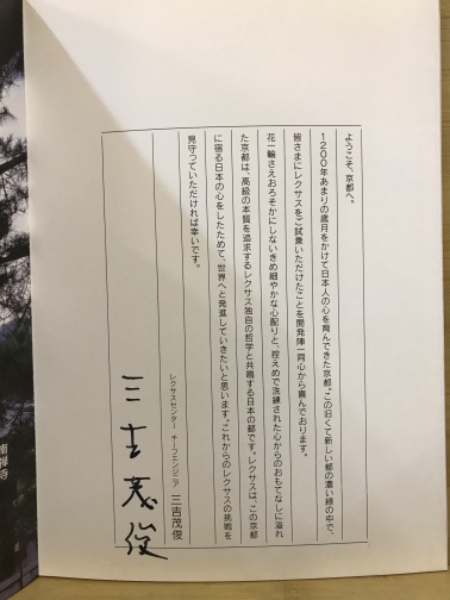 ようこそ、京都へ。
1200年あまりの歳月をかけて日本人の心を育んできた京都。この旧くて新しい都の濃い緑の中で、
皆さまにレクサスをご試乗いただけたことを開発陣一同心から喜んでおります。
花一輪さえおろそかにしないきめ細やかな心配りと、控えめで洗練された心からのおもてなしに溢れ
た京都は、高級の本質を追求するレクサス独自の哲学と共鳴する日本の都です。レクサスは、この京都
に宿る日本の心をしたためて、世界へと発進していきたいと思います。これからのレクサスの挑戦を
見守っていただければ幸いです。
レクサスセンター チーフエンジニア 三吉茂俊
三吉茂俊
南禅寺